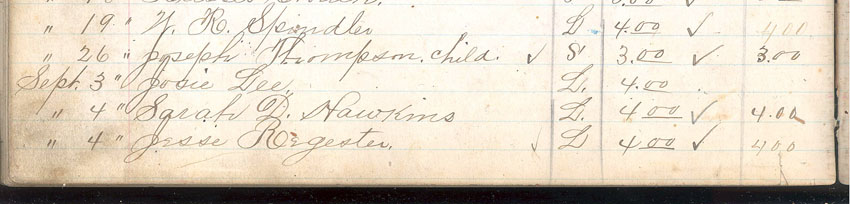 " 19 " W. R. Spindler L 4.00 ✓ 4.00
" 26 " Joseph Thompson. child. ✓ S 3.00 ✓ 3.00
Sept. 3 " Josie Lee. L. 4.00
" 4 " Sarah D. Hawkins L. 4.00 ✓ 4.00
" 4 " Jesse Regester. ✓ L 4.00 ✓ 4.00